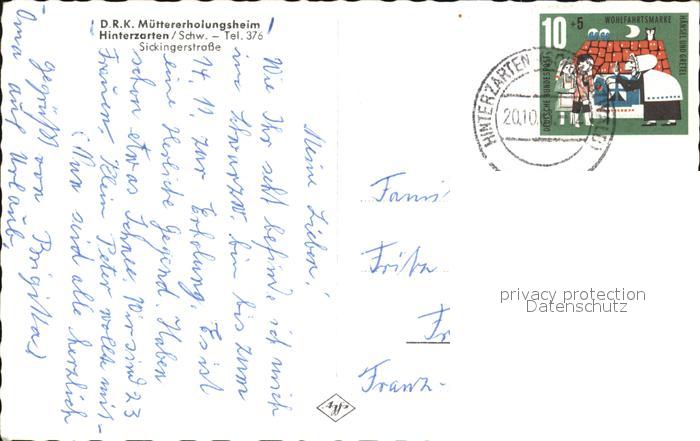 D.R.K. Müttererholungsheim
Hinterzarten / Schw. – Tel. 376
Sickingerstraße
Meine Lieben!
Wie Ihr seht befinde ich mich
im Schwarzw. bin bis zum
14. 11. zur Erholung. Es ist
eine Herliche Gegend. Haben
schon etwas Schnee. Wir sind 23
Frauen. Klein Peter wollte mit-
Nun seid alle herzlich
gegrüßt von Brigitta
Oma auf Urlaub
10 +5
WOHLFAHRTSMARKE
HÄNSEL UND GRETEL
DEUTSCHE BUNDESPOST
HINTERZARTEN
20.10.
Fami
Fritz
Fr
Franz-
privacy protection
Datenschutz